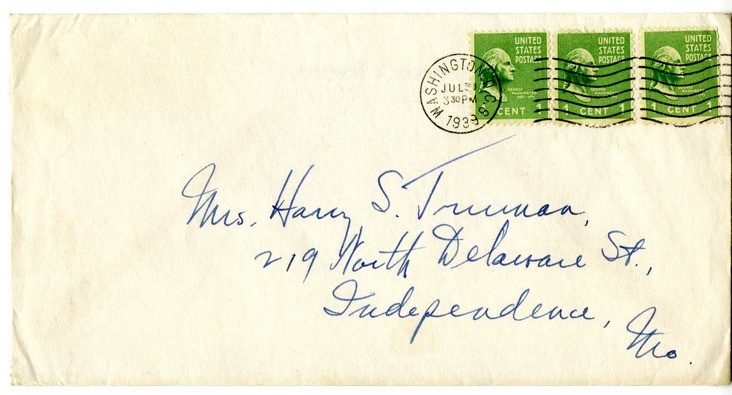 UNITED STATES POSTAGE
UNITED STATES POSTAGE
UNITED STATES POSTAGE
WASHINGTON, D.C. 8
JUL 31
3 30 PM
1939
GEORGE WASHINGTON
GEORGE WASHINGTON
GEORGE WASHINGTON
1 CENT 1
1 CENT 1
1 CENT 1
Mrs. Harry S. Truman,
219 North Delaware St.,
Independence,
Mo.